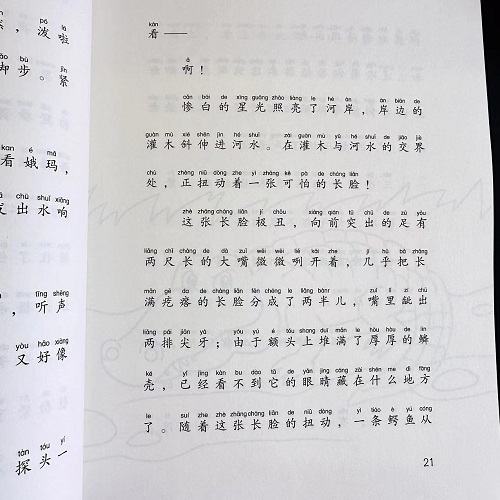 泼啦
却步。紧
看娥玛，
发出水响
，听声
又好像
探头一
看——
啊！
惨白的星光照亮了河岸，岸边的
灌木斜伸进河水。在灌木与河水的交界
处，正扭动着一张可怕的长脸！
这张长脸极丑，向前突出的足有
两尺长的大嘴微微咧开着，几乎把长
满疙瘩的长脸分成了两半儿，嘴里龇出
两排尖牙；由于额头上堆满了厚厚的鳞
壳，已经看不到它的眼睛藏在什么地方
了。随着这张长脸的扭动，一条鳄鱼从
21